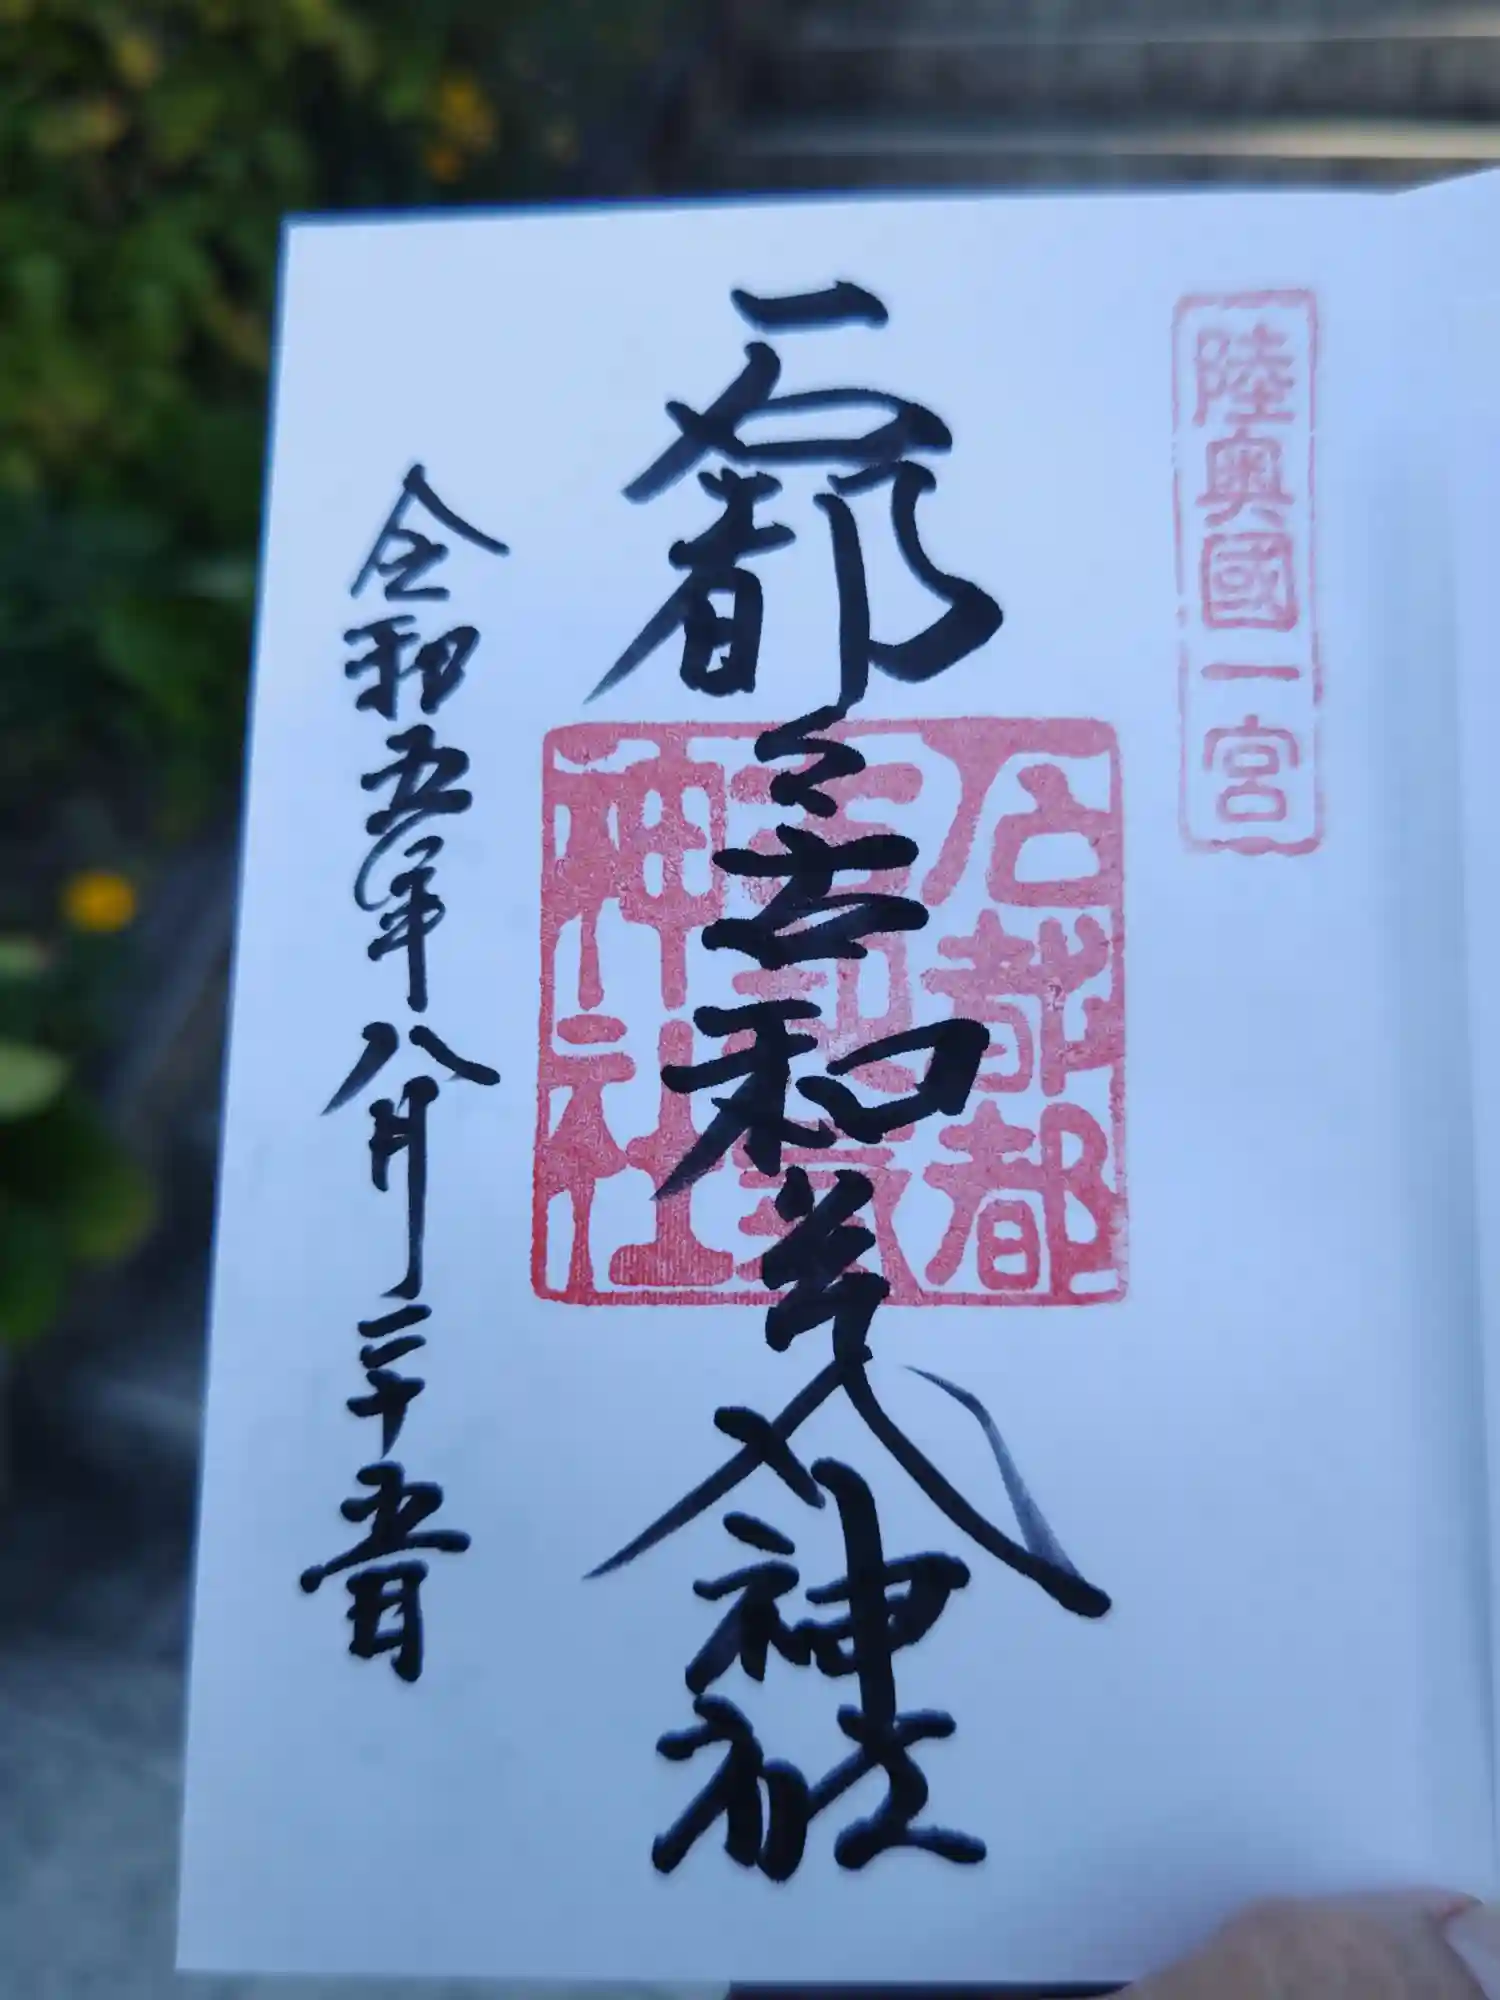 陸奥國一宮
石都々古和気神社
石都都
神社
令和五年八月二十五日